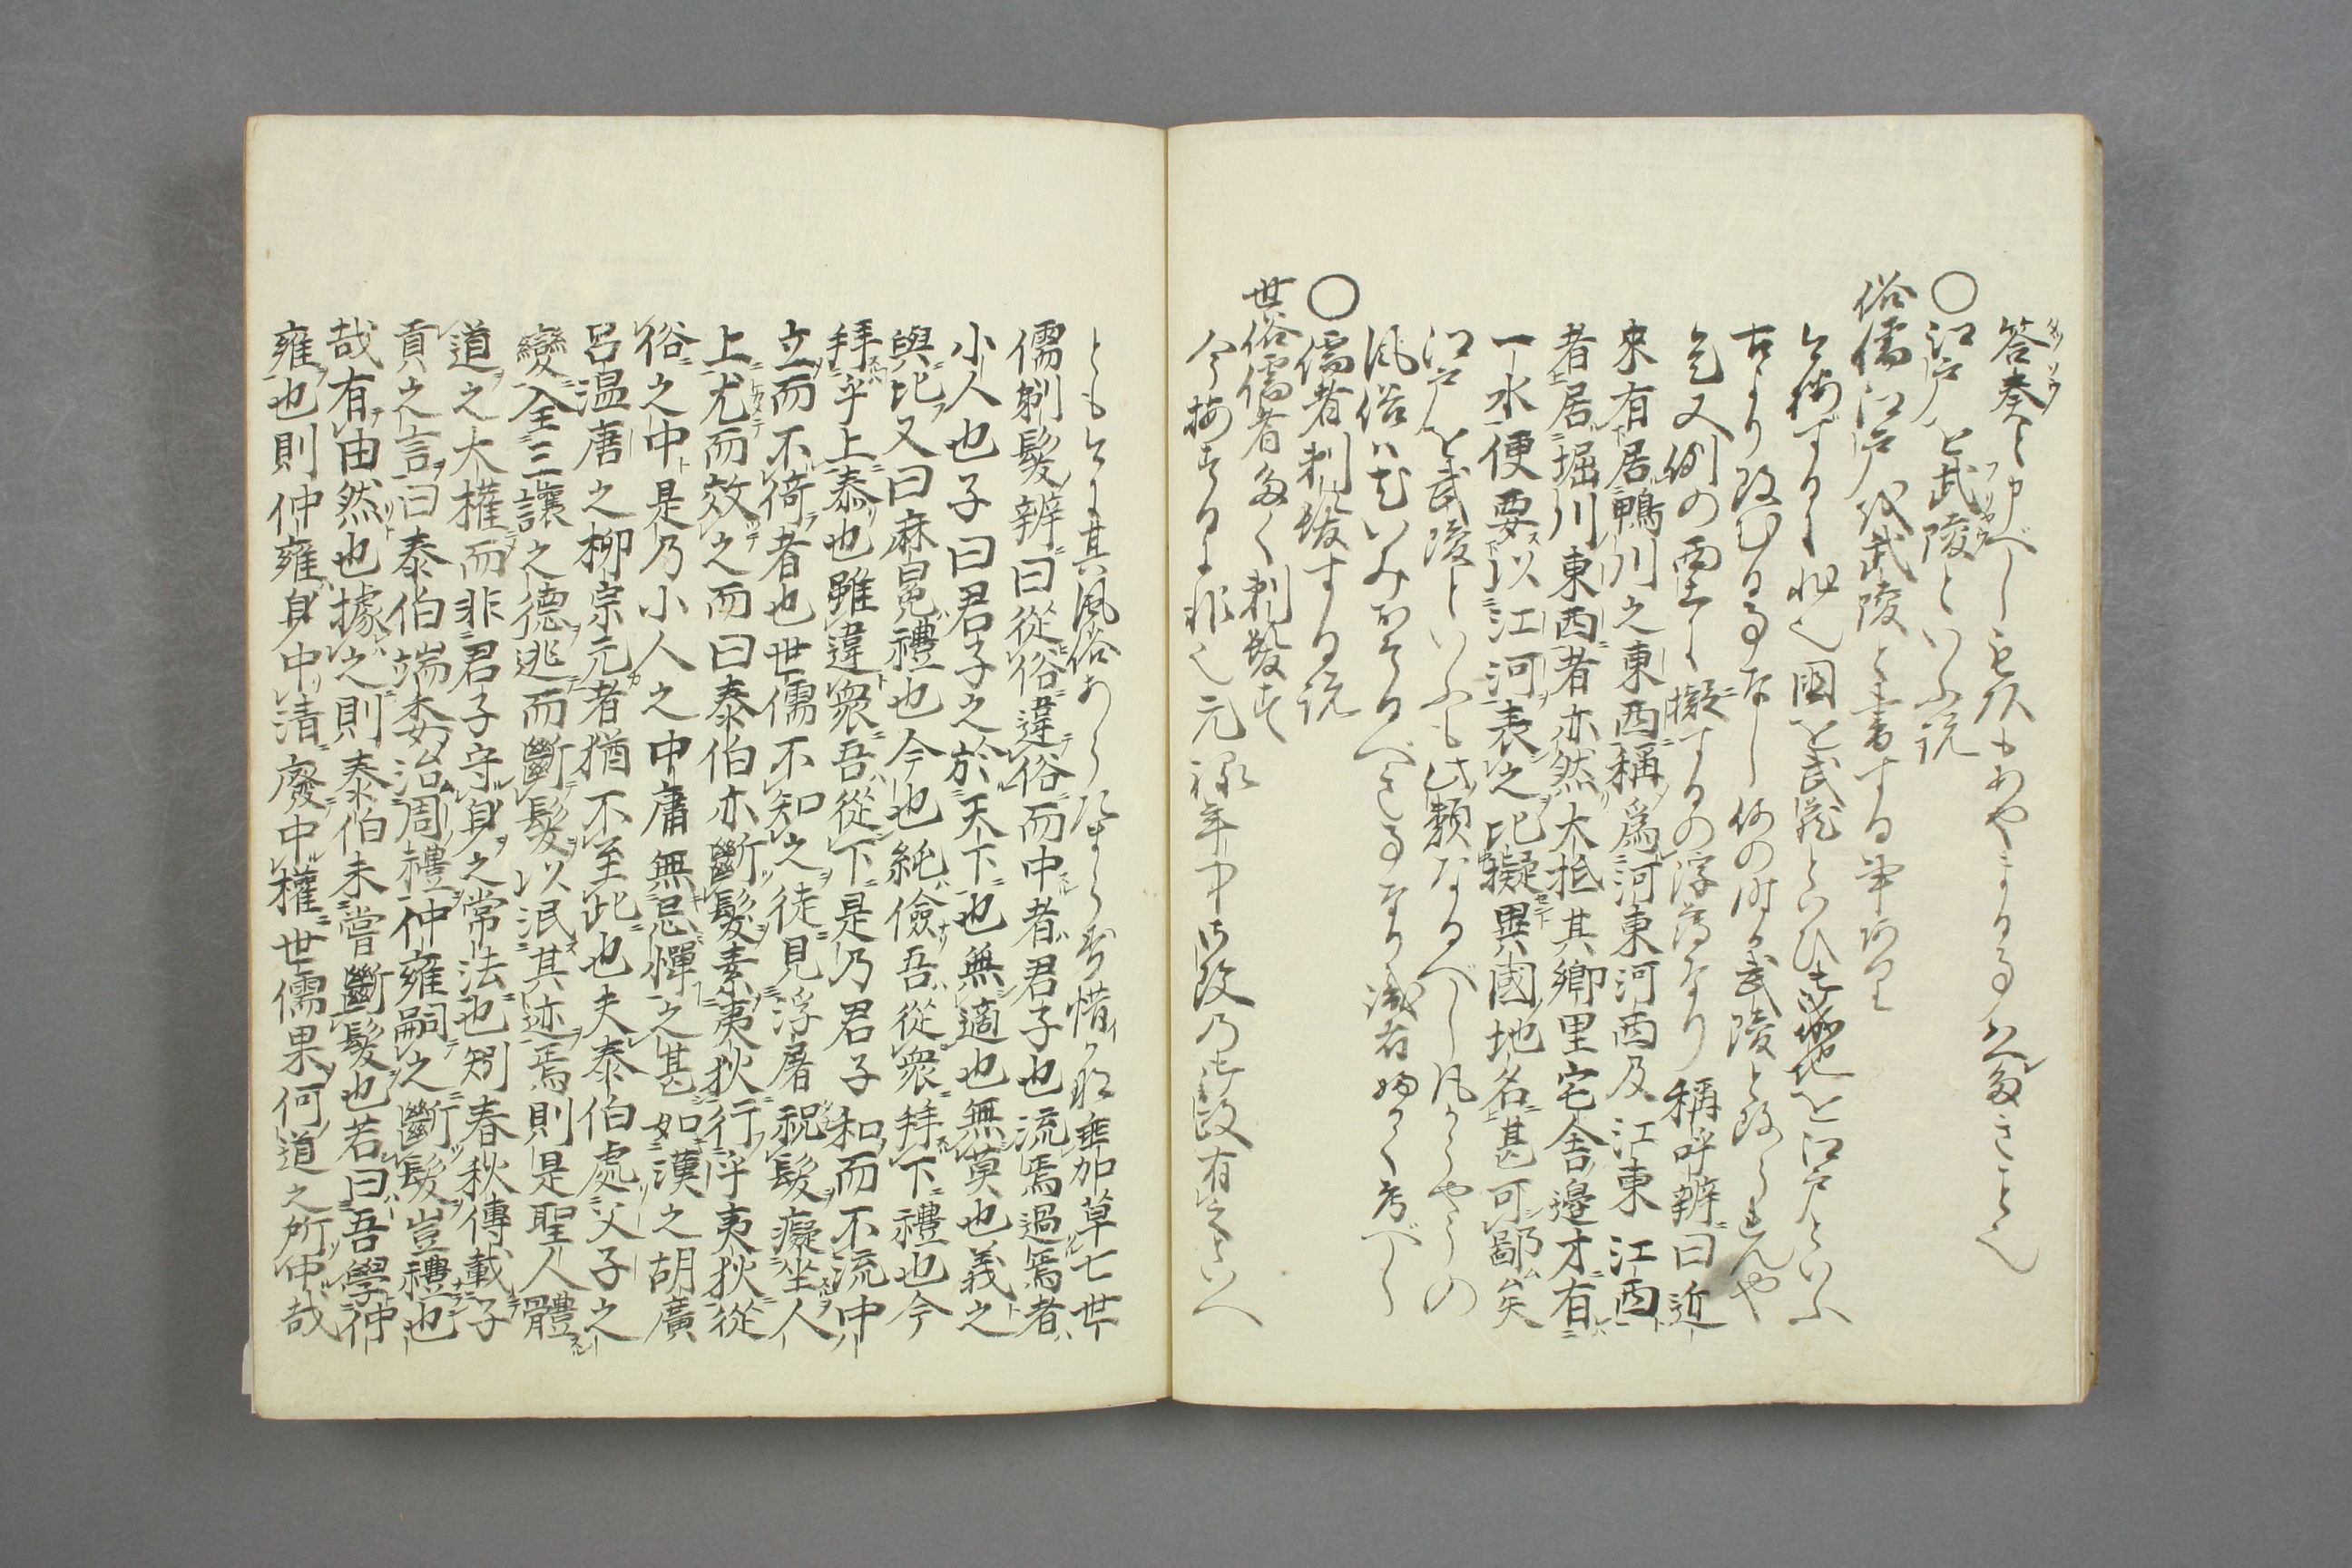 答奏と申べしこれもあやまる事甚多きことなり
○江戸を武陵といふ説
俗儒江戸を武陵と書する事あり
今按ずるに非也國を武蔵といひ其地を江戸といふ
古より改むる事なし何の時か武陵と改られんや
是又例の西土に擬するの浮薄なり稱呼辨曰近
來有居鴨川之東西稱為河東河西及江東江西
者居堀川東西者亦然大抵其鄉里宅舍邊才有
一水便要以江河表之比擬異國地名甚可鄙矣
江戸を武陵といふも此類なるべしかやうの
風俗はいみおそるべき事なり識者よく考べし
○儒者剃髮する説
世俗儒者多く剃髮す
今按ずるに非也元禄年中御改乃後改有之といへ
ともに其風俗あらたまらず惜かな垂加草七世
儒剃髮辨曰從俗違俗而中者君子也流焉過焉者
小人也子曰君子之於天下也無適也無莫也義之
與比又曰麻冕禮也今也純儉吾從衆拜下禮也今
拜乎上泰也雖違衆吾從下是乃君子和而不流中
立而不倚者也世儒不知之徒見浮屠祝髮癡坐人
上尤而效之而曰泰伯亦斷髮素夷狄行乎夷狄從
俗之中是乃小人之中庸無忌憚之甚如漢之胡廣
呂溫唐之柳宗元者猶不至此也夫泰伯處父子之
變全三讓之德逃而斷髮以泯其迹焉則是聖人體
道之大權而非君子守身之常法也矧春秋傳載子
貢之言曰泰伯端委治周禮仲雍嗣之斷髮豈禮也
哉有由然也據之則泰伯未嘗斷髮也若曰吾學仲
雍也則仲雍身中清廢中權世儒果何道之所中哉